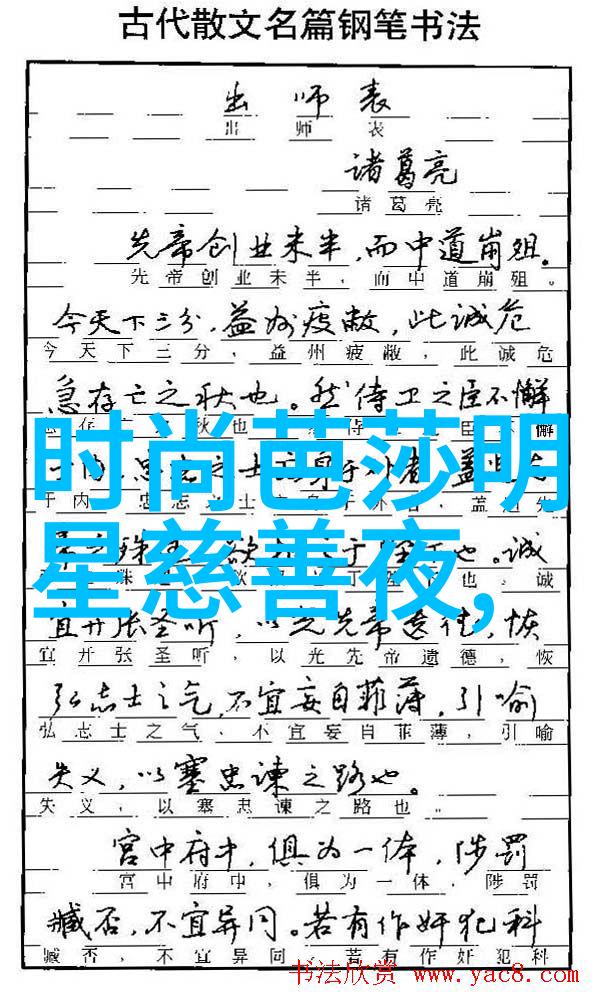 古代散文名篇钢笔书法
出师表
出师表
诸葛亮
诸葛亮
先帝创业未半，而中道崩殂。
先帝创业未半，而中道崩殂。
今天下三分，益州疲敝，此诚危
今天下三分，益州疲敝，此诚危
急存亡之秋也。然侍卫之臣不懈
存 秋也 侍 臣不懈
时尚芭莎明
于内，忠志之士 身于外者，盖
于内，忠志之士 于外者，盖追先
星慈善夜,
殊 欲 于 也。诚
殊 也，诚
宜开张圣听，以光先帝遗德，恢
宜开张圣听，以光先帝遗德，恢
弘志士之气，不宜妄自菲薄，引喻
弘志士之气，不宜妄自菲薄，引喻
失义，以塞忠谏之路也。
失义，以塞忠谏之路也。
宫中府中，俱为一体，陟罚
宫中府中，俱为一体，陟罚
臧否，不宜异同。若有作奸犯科
臧否，不宜异同。若有作奸犯科
书法欣赏 www.yac8.com